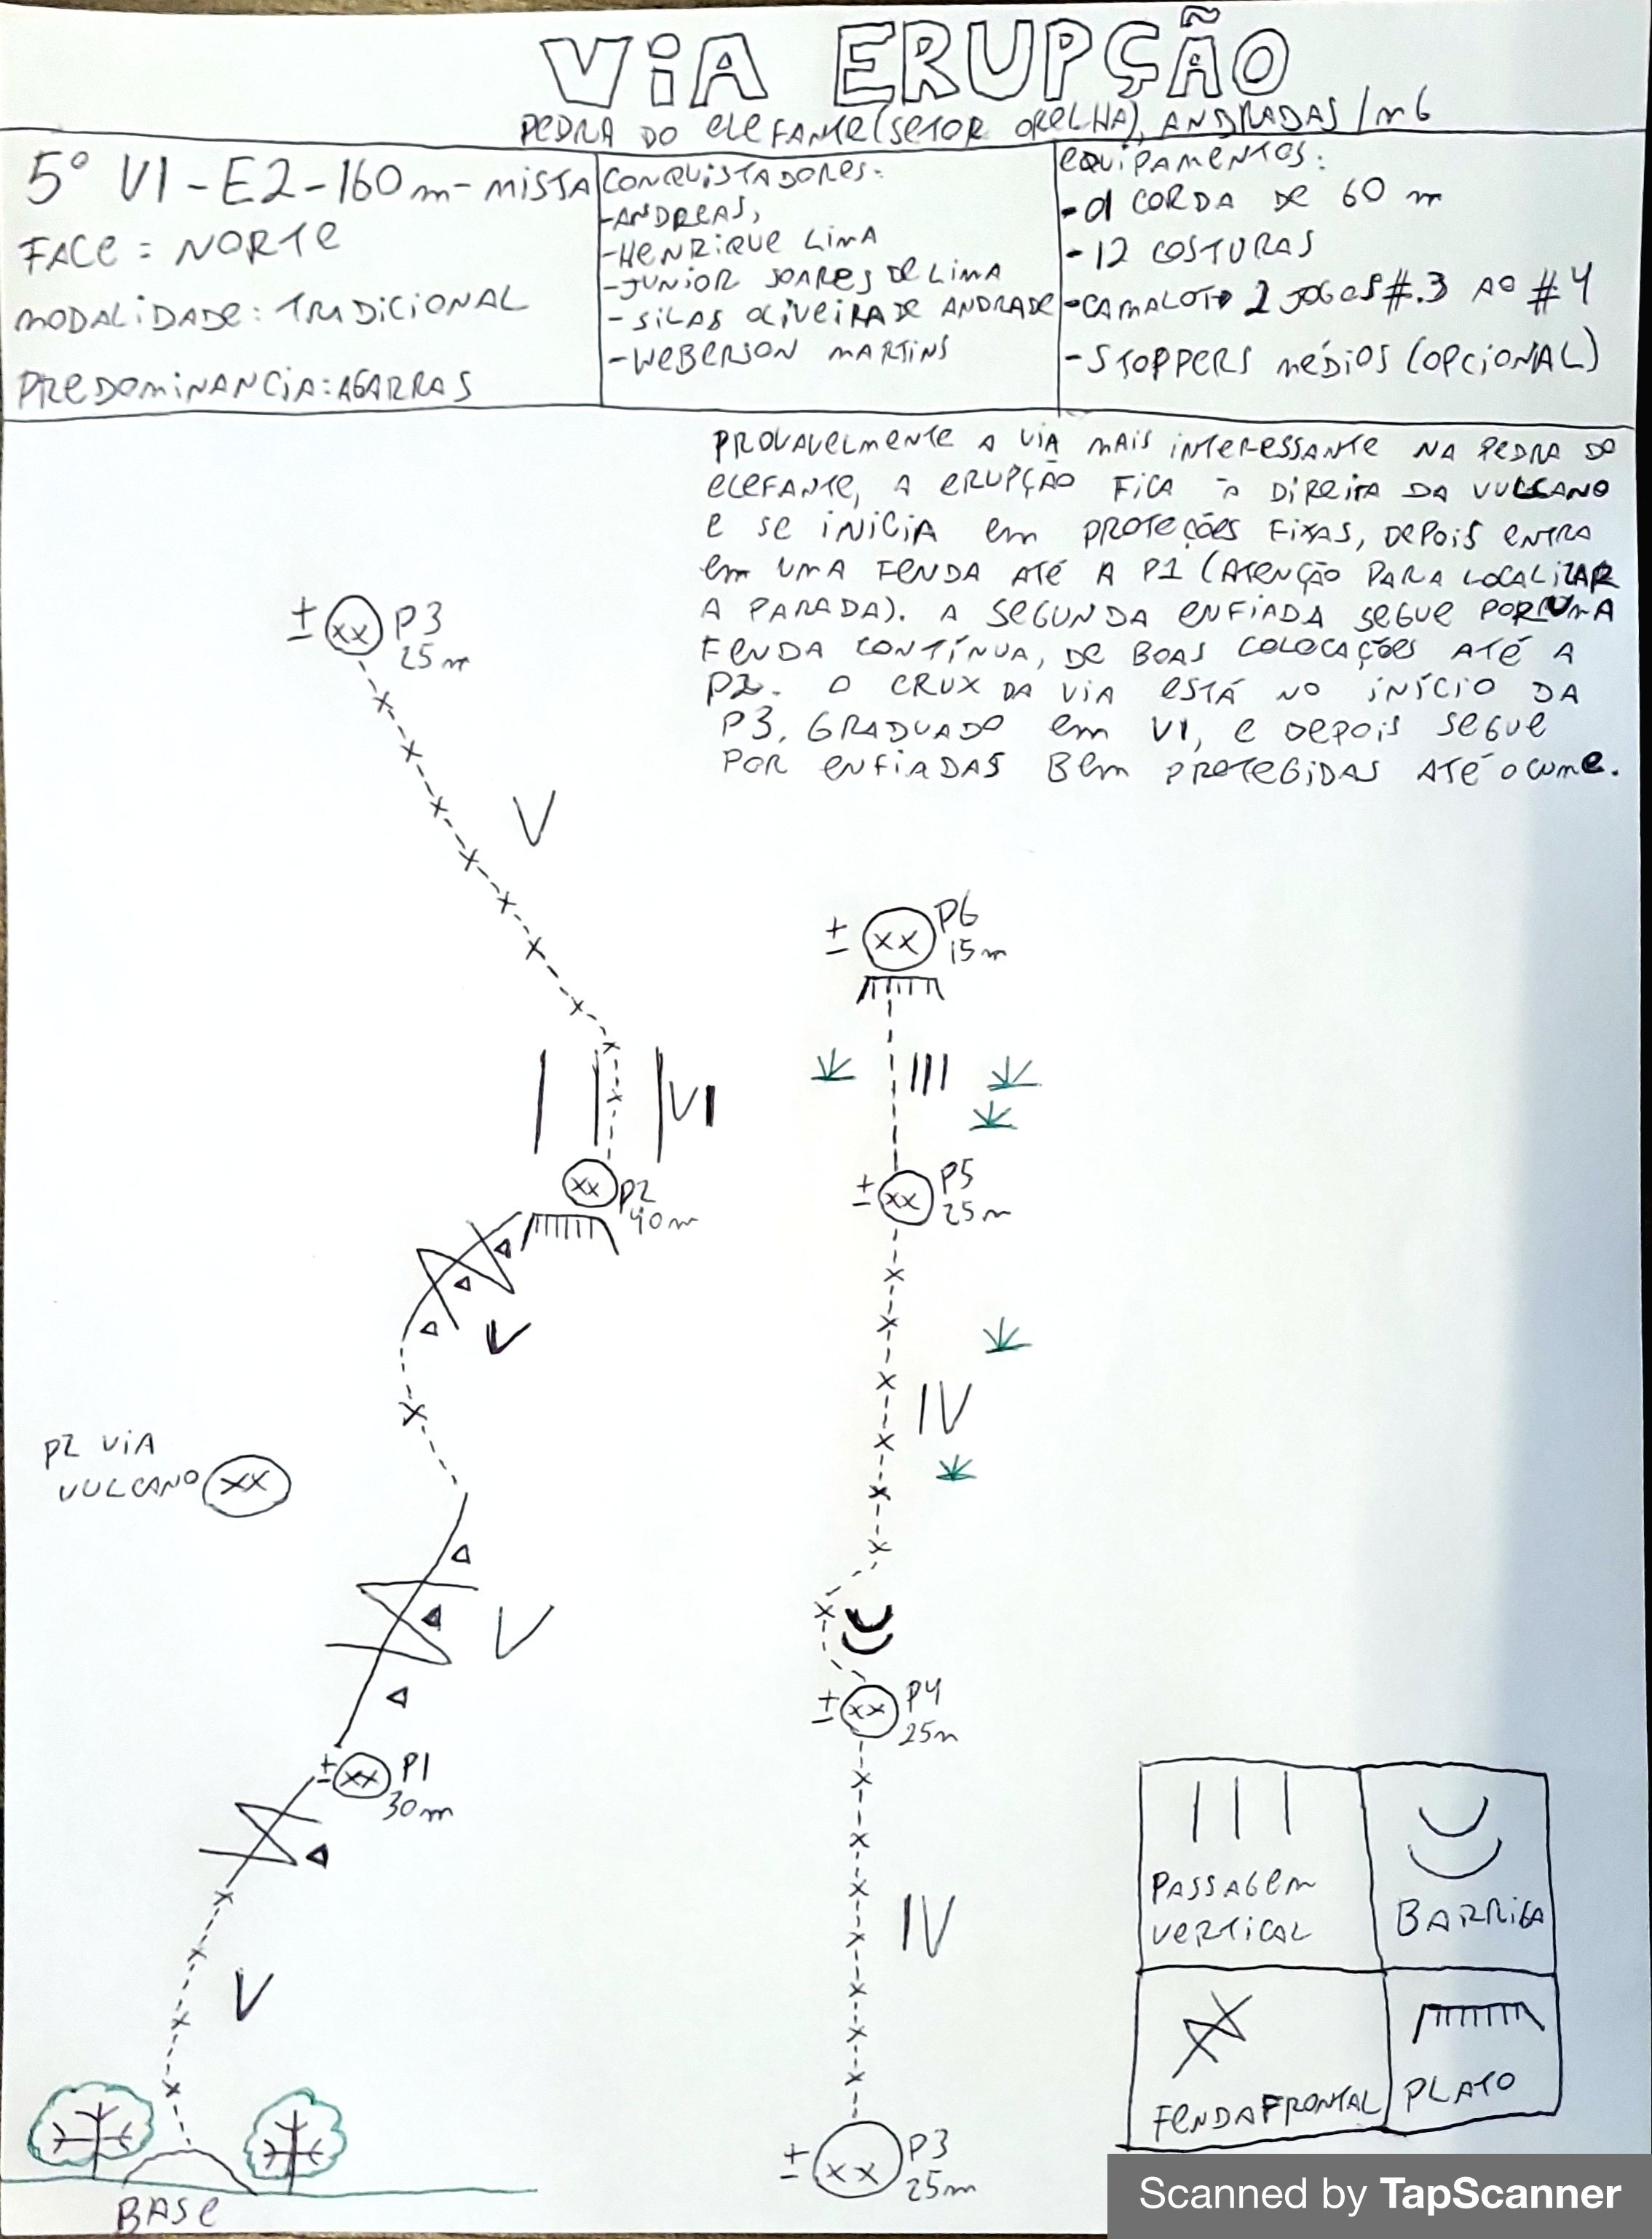 VIA ERUPÇÃO
PEDRA DO ELEFANTE (SETOR ORELHA), ANDRADAS/MG
5° VI - E2 - 160 m - MISTA
FACE: NORTE
MODALIDADE: TRADICIONAL
PREDOMINANCIA: AGARRAS
CONQUISTADORES:
- ANDREAS,
- HENRIQUE LIMA
- JUNIOR SOARES DE LIMA
- SILAS OLIVEIRA DE ANDRADE
- WEBERSON MARTINS
EQUIPAMENTOS:
- 01 CORDA DE 60 m
- 12 COSTURAS
- CAMALOT 2 JOGOS #.3 AO #4
- STOPPERS MÉDIOS (OPCIONAL)
PROVAVELMENTE A VIA MAIS INTERESSANTE NA PEDRA DO
ELEFANTE, A ERUPÇÃO FICA À DIREITA DA VULCANO
E SE INICIA EM PROTEÇÕES FIXAS, DEPOIS ENTRA
EM UMA FENDA ATÉ A P1 (ATENÇÃO PARA LOCALIZAR
A PARADA). A SEGUNDA ENFIADA SEGUE POR UMA
FENDA CONTÍNUA, DE BOAS COLOCAÇÕES ATÉ A
P2. O CRUX DA VIA ESTÁ NO INÍCIO DA
P3, GRADUADO EM VI, E DEPOIS SEGUE
POR ENFIADAS BEM PROTEGIDAS ATÉ O CUME.
± XX P3
25 m
V
VI
XX P2
40 m
V
P2 VIA
VULCANO XX
V
± XX P1
30 m
V
BASE
± XX P6
15 m
III
± XX P5
25 m
IV
± XX P4
25 m
IV
± XX P3
25 m
PASSAGEM
VERTICAL
BARRIGA
FENDA FRONTAL
PLATO
Scanned by TapScanner